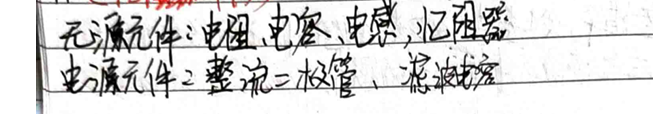 无源元件：电阻、电容、电感，忆阻器
电源元件：整流二极管、滤波电容